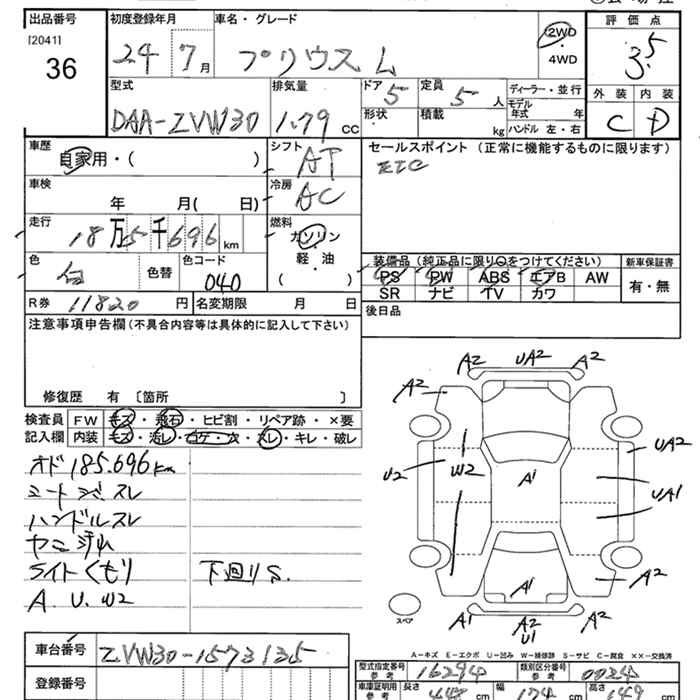 出品番号
[2041]
36
初度登録年月
24 7月
車名・グレード
プリウス L
2WD
4WD
評価点
3.5
外装 内装
C D
型式
DAA-ZVW30
排気量
1.79 CC
ドア 5
形状
定員 5人
積載 kg
ディーラー・並行
モデル年式 年
ハンドル 左・右
車歴
自家用・( )
シフト
AT
セールスポイント (正常に機能するものに限ります)
ETC
車検
年 月( 日)
冷房
AC
走行
18万5千696km
燃料
ガソリン
軽・油
( )
色
白 色替
色コード
040
装備品 (純正品に限り○をつけてください)
PS PW ABS エアB AW
SR ナビ TV カワ
新車保証書
有・無
R券 11820円
名変期限 月 日
後日品
注意事項申告欄(不具合内容等は具体的に記入して下さい)
修復歴 有 〔箇所 〕
検査員
記入欄
FW キズ・飛石・ヒビ割・リペア跡・×要
内装 キズ・汚レ・コゲ・穴・スレ・キレ・破レ
オド 185.696km
シートジミスレ
ハンドルスレ
ヤニ汚れ
ライトくもり 下回りS.
A. U. W2
A2 UA2 A2
A2
UA2
U2 W2 A1
UA1
A1 A2
スペア
A1 A2 A2
U1
A-キズ E-エクボ U-凹み W-補修跡 S-サビ C-腐食 ××-交換済
車台番号
ZVW30-1573135
登録番号
型式指定番号
参考
16294
類別区分番号
参考
0024
車庫証明用
参考
長さ 448 cm
幅 174 cm
高さ 149 cm